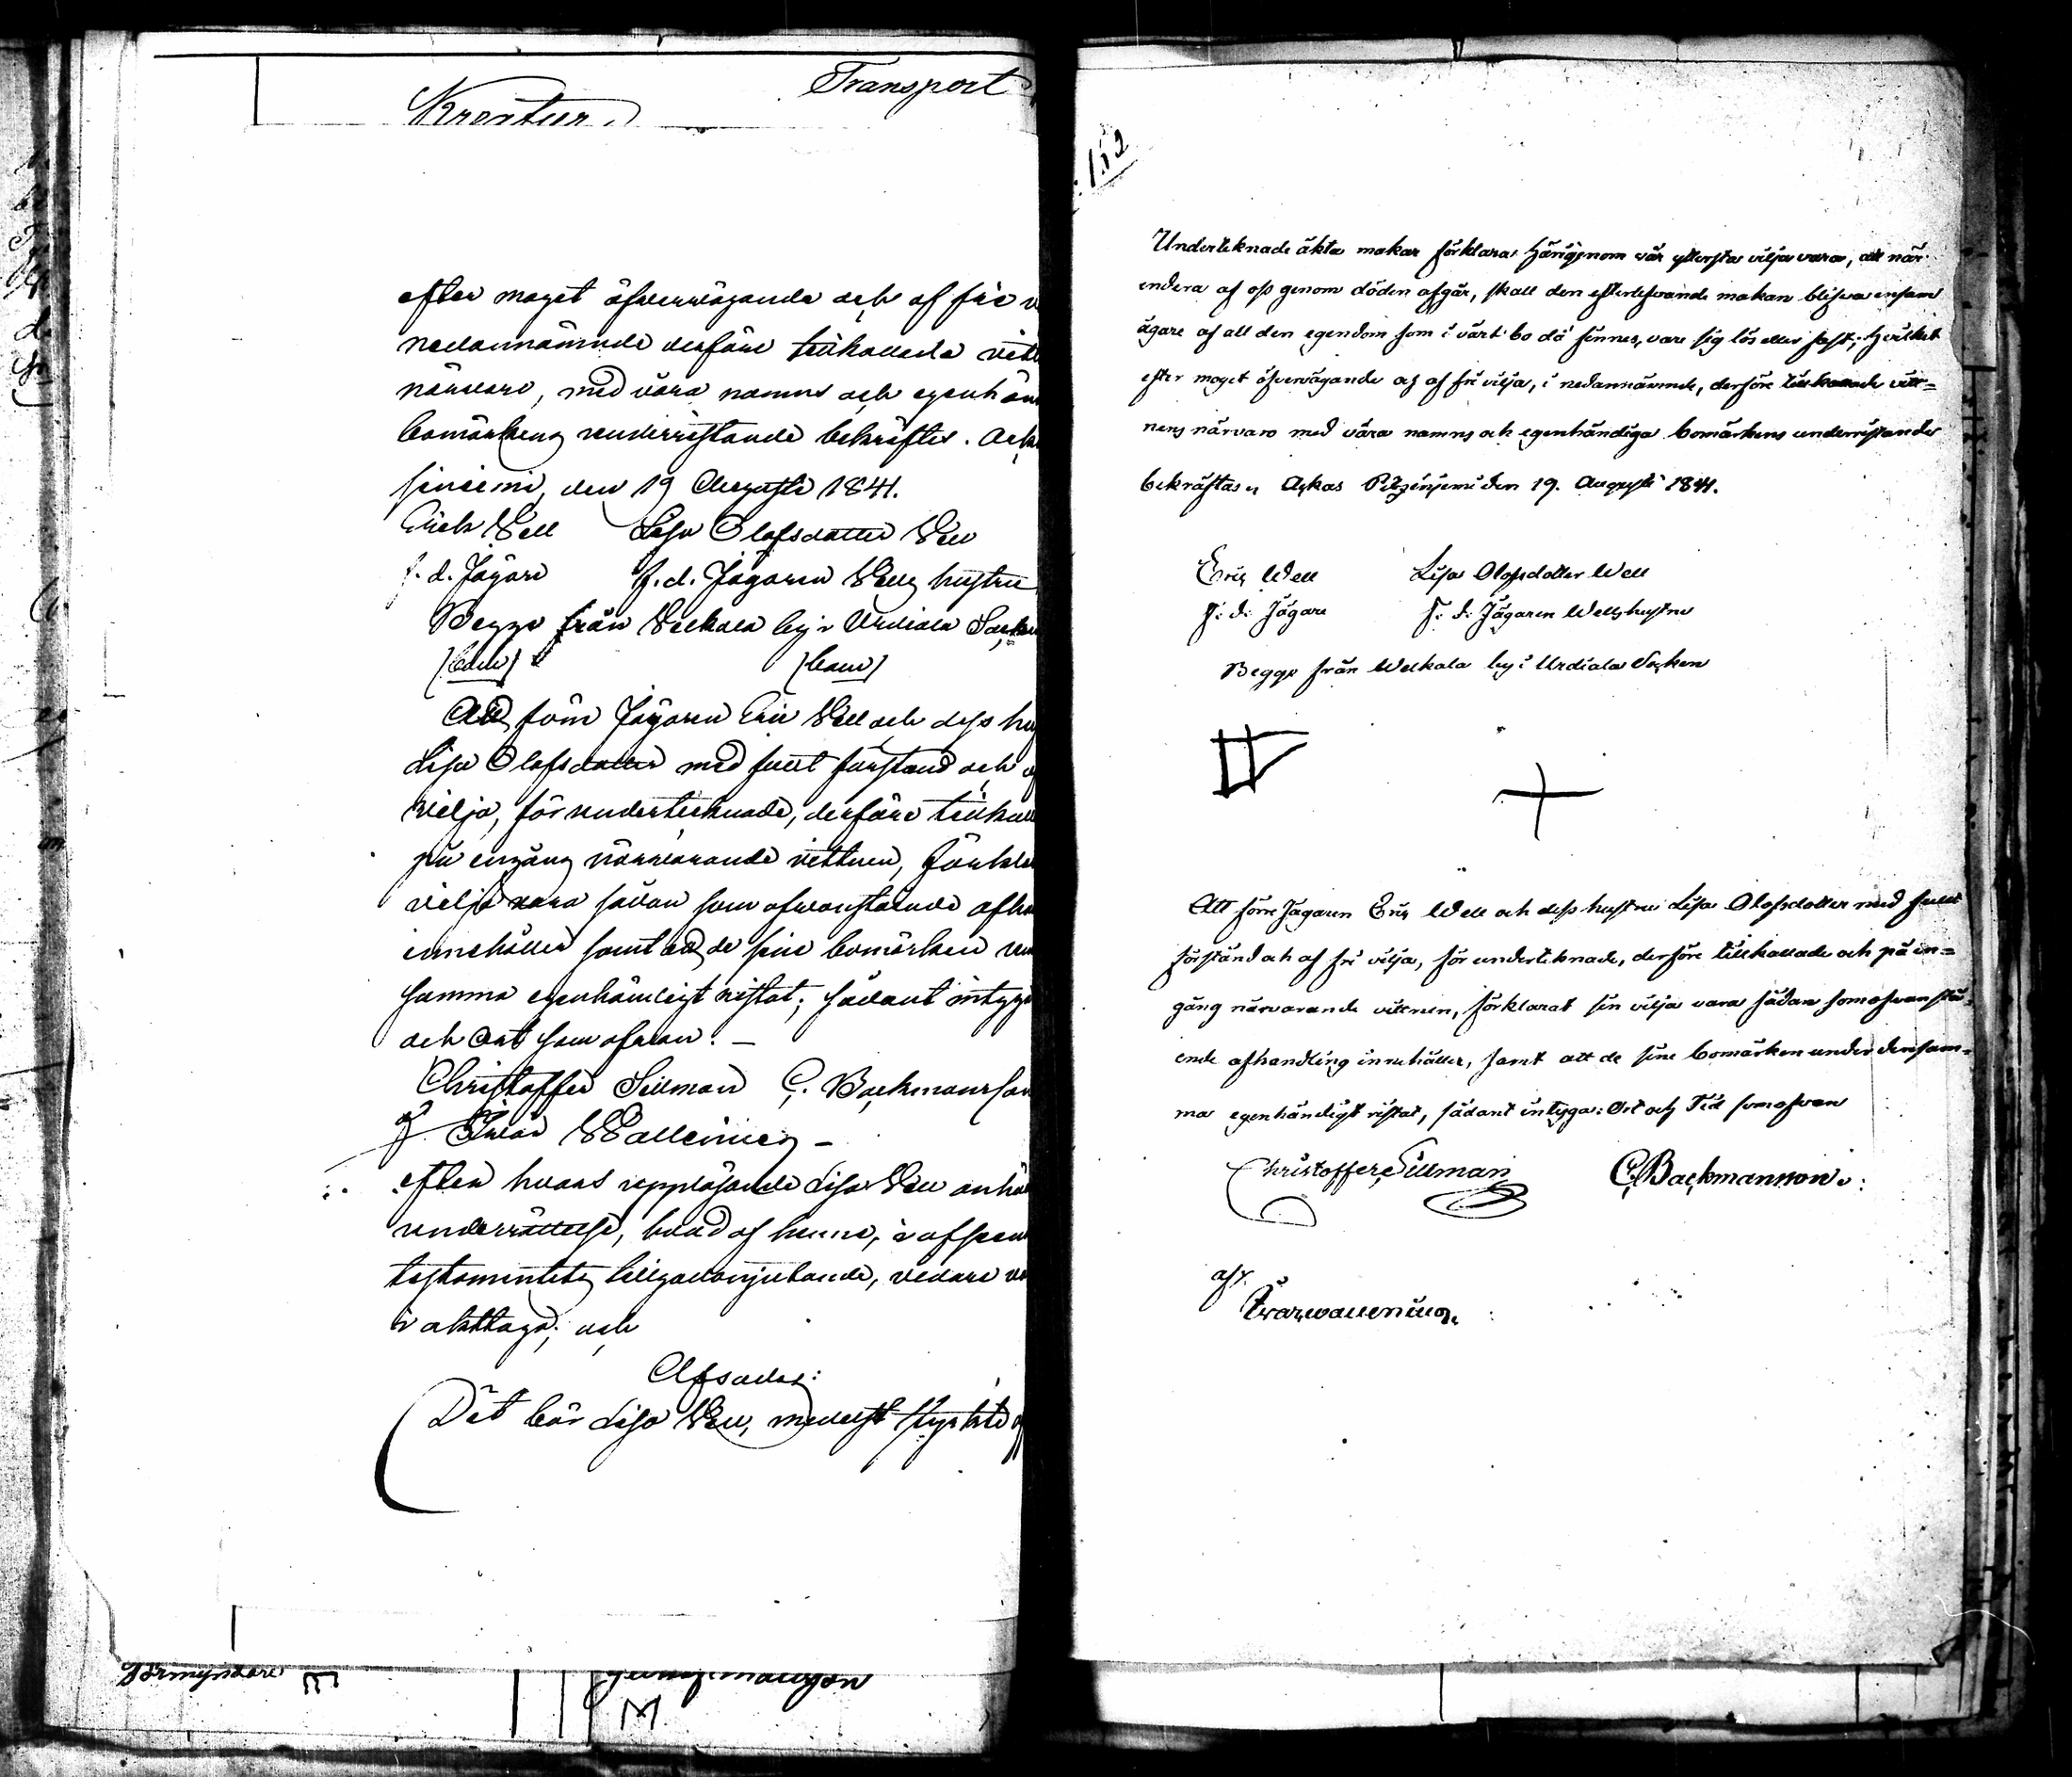 Transport
efter moget öfvervägande och af fri
nedannämnde derföre tillkallade
närvaro, med våra namns och egenhän
bomärkens underristande bekräftes.
sinemi, den 19 Augusti 1841.
Erich Well Lisa Olofsdotter Well
f. d. Jägare f. d. Jägaren Wells hustru
Begge från Welkala by i Urdiala Sock
(bom) (bom)
Att förre Jägaren Eric Well och dess hu
Lisa Olofsdotter med fullt förstånd och
vilja, för undertecknade, derföre tillkal
på engång närvarande vittnen, förkla
vilja vara sådan som ofvanstående afha
innehåller samt att de sine bomärken un
samma egenhändigt ristat; sådant intyga
och Ort som ofvan. —
Christoffer Sillman C. Backmansson
Ivar Wallenius –
efter hvars uppläsande Lisa Well anhö
underrättelse, hvad af henne, i afseen
testamentets tillgodonjutande, vidare
i akttaga; och
Afsades:
Det bör Lisa Well, medelst
Förmyndare
152
Underteknade äkta makar förklara härigenom vår yttersta vilja vara, att när
endera af oss genom döden afgår, skall den efterlefvande makan blifva ensam
ägare af all den egendom som i vårt bo då finnes, vare sig lös eller fast; hvilket
efter moget öfvervägande och af fri vilja, i nedannämnde, derföre tillkallade vitt=
nens närvaro med våra namns och egenhändiga bomärkens underristande
bekräftas, Ackas den 19. Augusti 1841.
Eric Well Lisa Olofsdotter Well
F. d. Jägare F. d. Jägaren Wells hustru
Begge från Welkala by i Urdiala Socken
Att förre Jägaren Eric Well och dess hustru Lisa Olofsdotter med fullt
förstånd och af fri vilja, för underteknade, derföre tillkallade och på en=
gång närvarande vittnen, förklarat sin vilja vara sådan som ofvanstå=
ende afhandling innehåller, samt att de sine bomärken under densam=
ma egenhändigt ristat, sådant intyga: Ort och Tid som ofvan
Christoffer Sillman C Backmansson
Ivar Wallenius